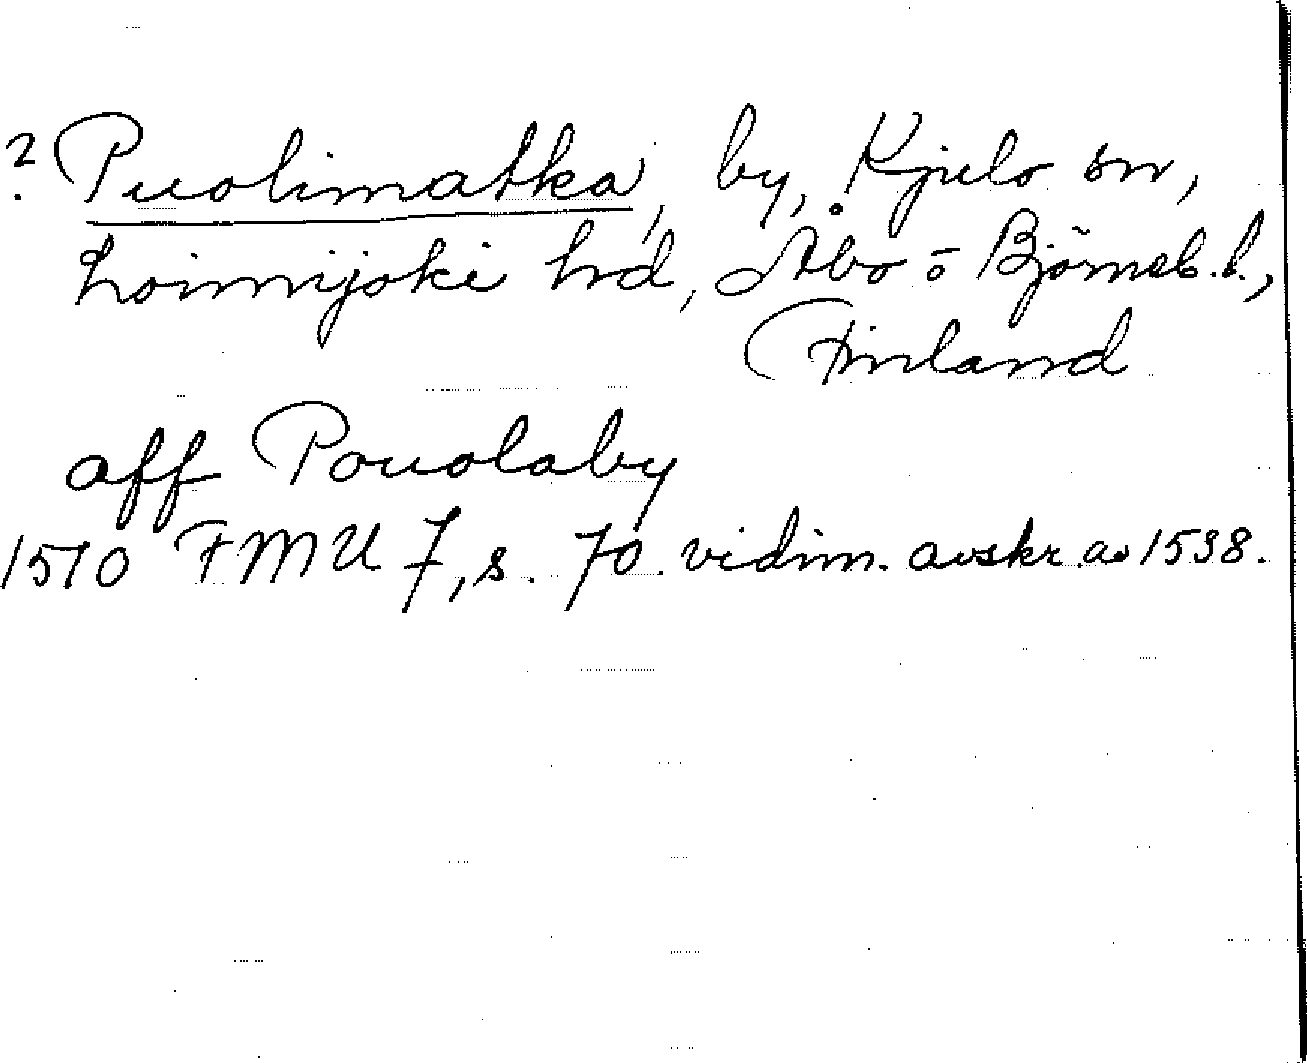 ? Puolimatka, by, Kjulo sn,
Loimijoki hd, Åbo o Björneb. l.,
Finland
aff Pouolaby
1510 FMU 7, s. 70. vidim. avskr. av 1538.